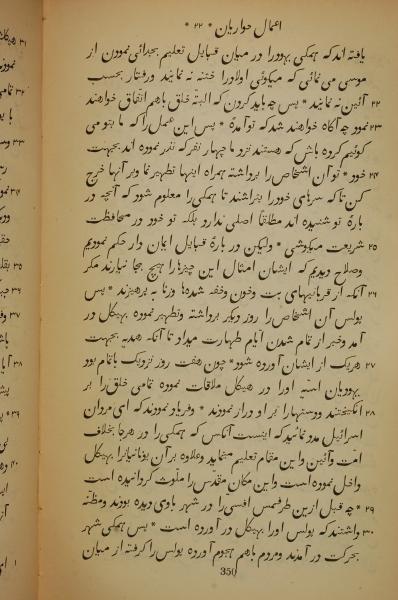 اعمال حواریان * ۲۲ *
یافته اند که همکی یهود را در میان قبایل تعلیم بجدائی نمودن از
موسی می نمائی که میکوئی اولاد را ختنه نه نمایند و رفتار بحسب
۲۲ آئین نه نمایند * پس چه باید کردن که البته خلق باهم اتفاق خواهند
۲۳ نمود چه آکاه خواهند شد که تو آمدهٔ * پس این عمل را که ما بتو می
کوئیم کرده باش که هستند نزد ما چهار نفر که نذر نموده اند بجهت
۲۴ خود * تو آن اشخاص را برداشته همراه اینها تطهیر نما و بر آنها خرج
کن تا که سرهای خود را بتراشند تا همکی را معلوم شود که آنچه در
بارهٔ تو شنیده اند مطلقاً اصلی ندارد بلکه تو خود در محافظت
۲۵ شریعت میکوشی * ولیکن در بارهٔ قبایل ایمان دار حکم نمودیم
وصلاح دیدیم که ایشان امثال این چیزها را هیچ بجا نیارند مکر
۲۶ آنکه از قربانیهای بت وخون وخفه شدها وزنا به پرهیزند * پس
پولس آن اشخاص را روز دیکر برداشته وتطهیر نموده بهیکل در
آمد وخبر از تمام شدن ایام طهارت میداد تا آنکه هدیه بجهت
۲۷ هریک از ایشان آورده شود * چون هفت روز نزدیک باتمام بود
یهودیان اسیه اورا در هیکل ملاقات نموده تمامی خلق را بر
۲۸ انکیختند ودستها را بر او دراز نمودند * وفریاد نمودند که ای مردان
اسرائیل مدد نمائید که اینست آنکس که همکی را در هرجا بخلاف
امت وآئین واین مقام تعلیم مینماید وعلاوه بر آن یونانیان را بهیکل
داخل نموده است واین مکان مقدس را ملوث کردانیده است
۲۹ * چه قبل ازین طرفمس افسی را در شهر باوی دیده بودند ومظنه
۳۰ داشتند که پولس اورا بهیکل در آورده است * پس همکی شهر
بحرکت در آمدند ومردم باهم هجوم آورده پولس را کرفته از میان
350